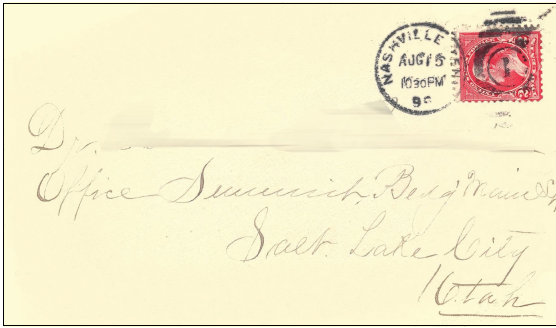 NASHVILLE TENN.
AUG 15
1030PM
D
Office Summit Bldg Main St
Salt Lake City
Utah